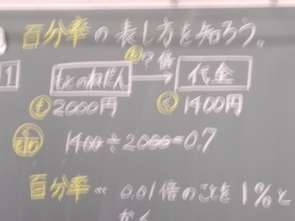 百分率の表し方を知ろう。
?倍
1 もとのねだん 代金
2000円 1400円
1400÷2000=0.7
百分率… 0.01倍のことを1%と